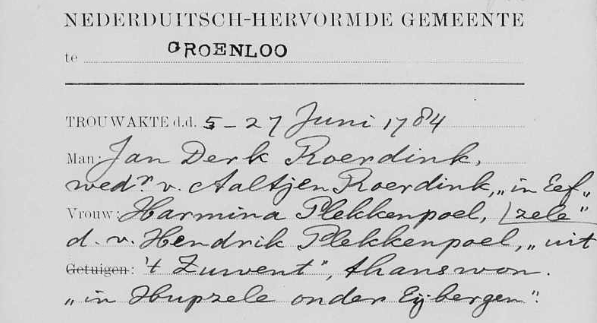 NEDERDUITSCH-HERVORMDE GEMEENTE
te GROENLOO
TROUWAKTE d.d. 5-27 Juni 1784
Man: Jan Derk Roerdink,
wedr v. Aaltjen Roerdink, „in Eef„
Vrouw: Harmina Plekkenpoel, [zele"
d. v. Hendrik Plekkenpoel, „uit
Getuigen: 't Zuwent", thans won.
„in Hupzele onder Eijbergen".